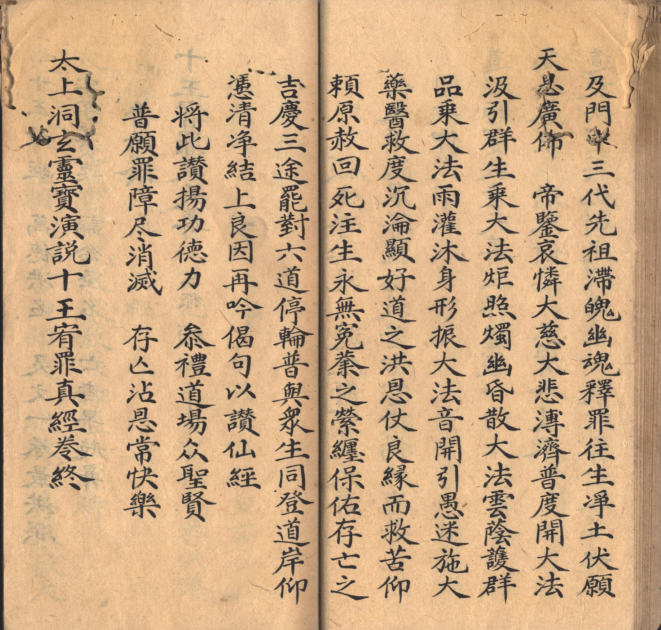 及門中三代先祖滯魄幽魂釋罪往生淨土伏願
天恩廣佈　帝鑒哀憐大慈大悲溥濟普度開大法
汲引群生乘大法炬照燭幽昏散大法雲蔭護群
品乘大法雨灌沐身形振大法音開引愚迷施大
藥醫救度沉淪顯好道之洪恩仗良緣而救苦仰
賴原赦回死注生永無冤蘗之縈纏保佑存亡之
吉慶三途罷對六道停輪普與衆生同登道岸仰
憑清净結上良因再吟偈句以讃仙經
將此讃揚功德力　叅禮道場众聖賢
普願罪障尽消滅　存亾沾恩常快樂
太上洞玄靈寶演説十王宥罪真經卷終